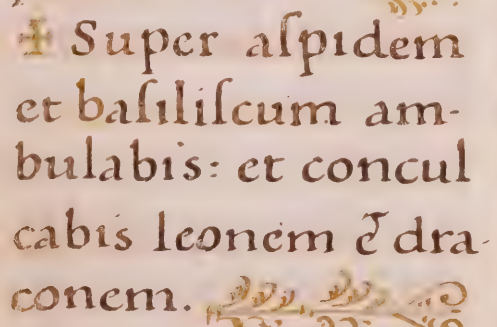 ✠ Super aſpidem
et baſiliſcum am-
bulabis: et concul
cabis leonem & dra-
conem.